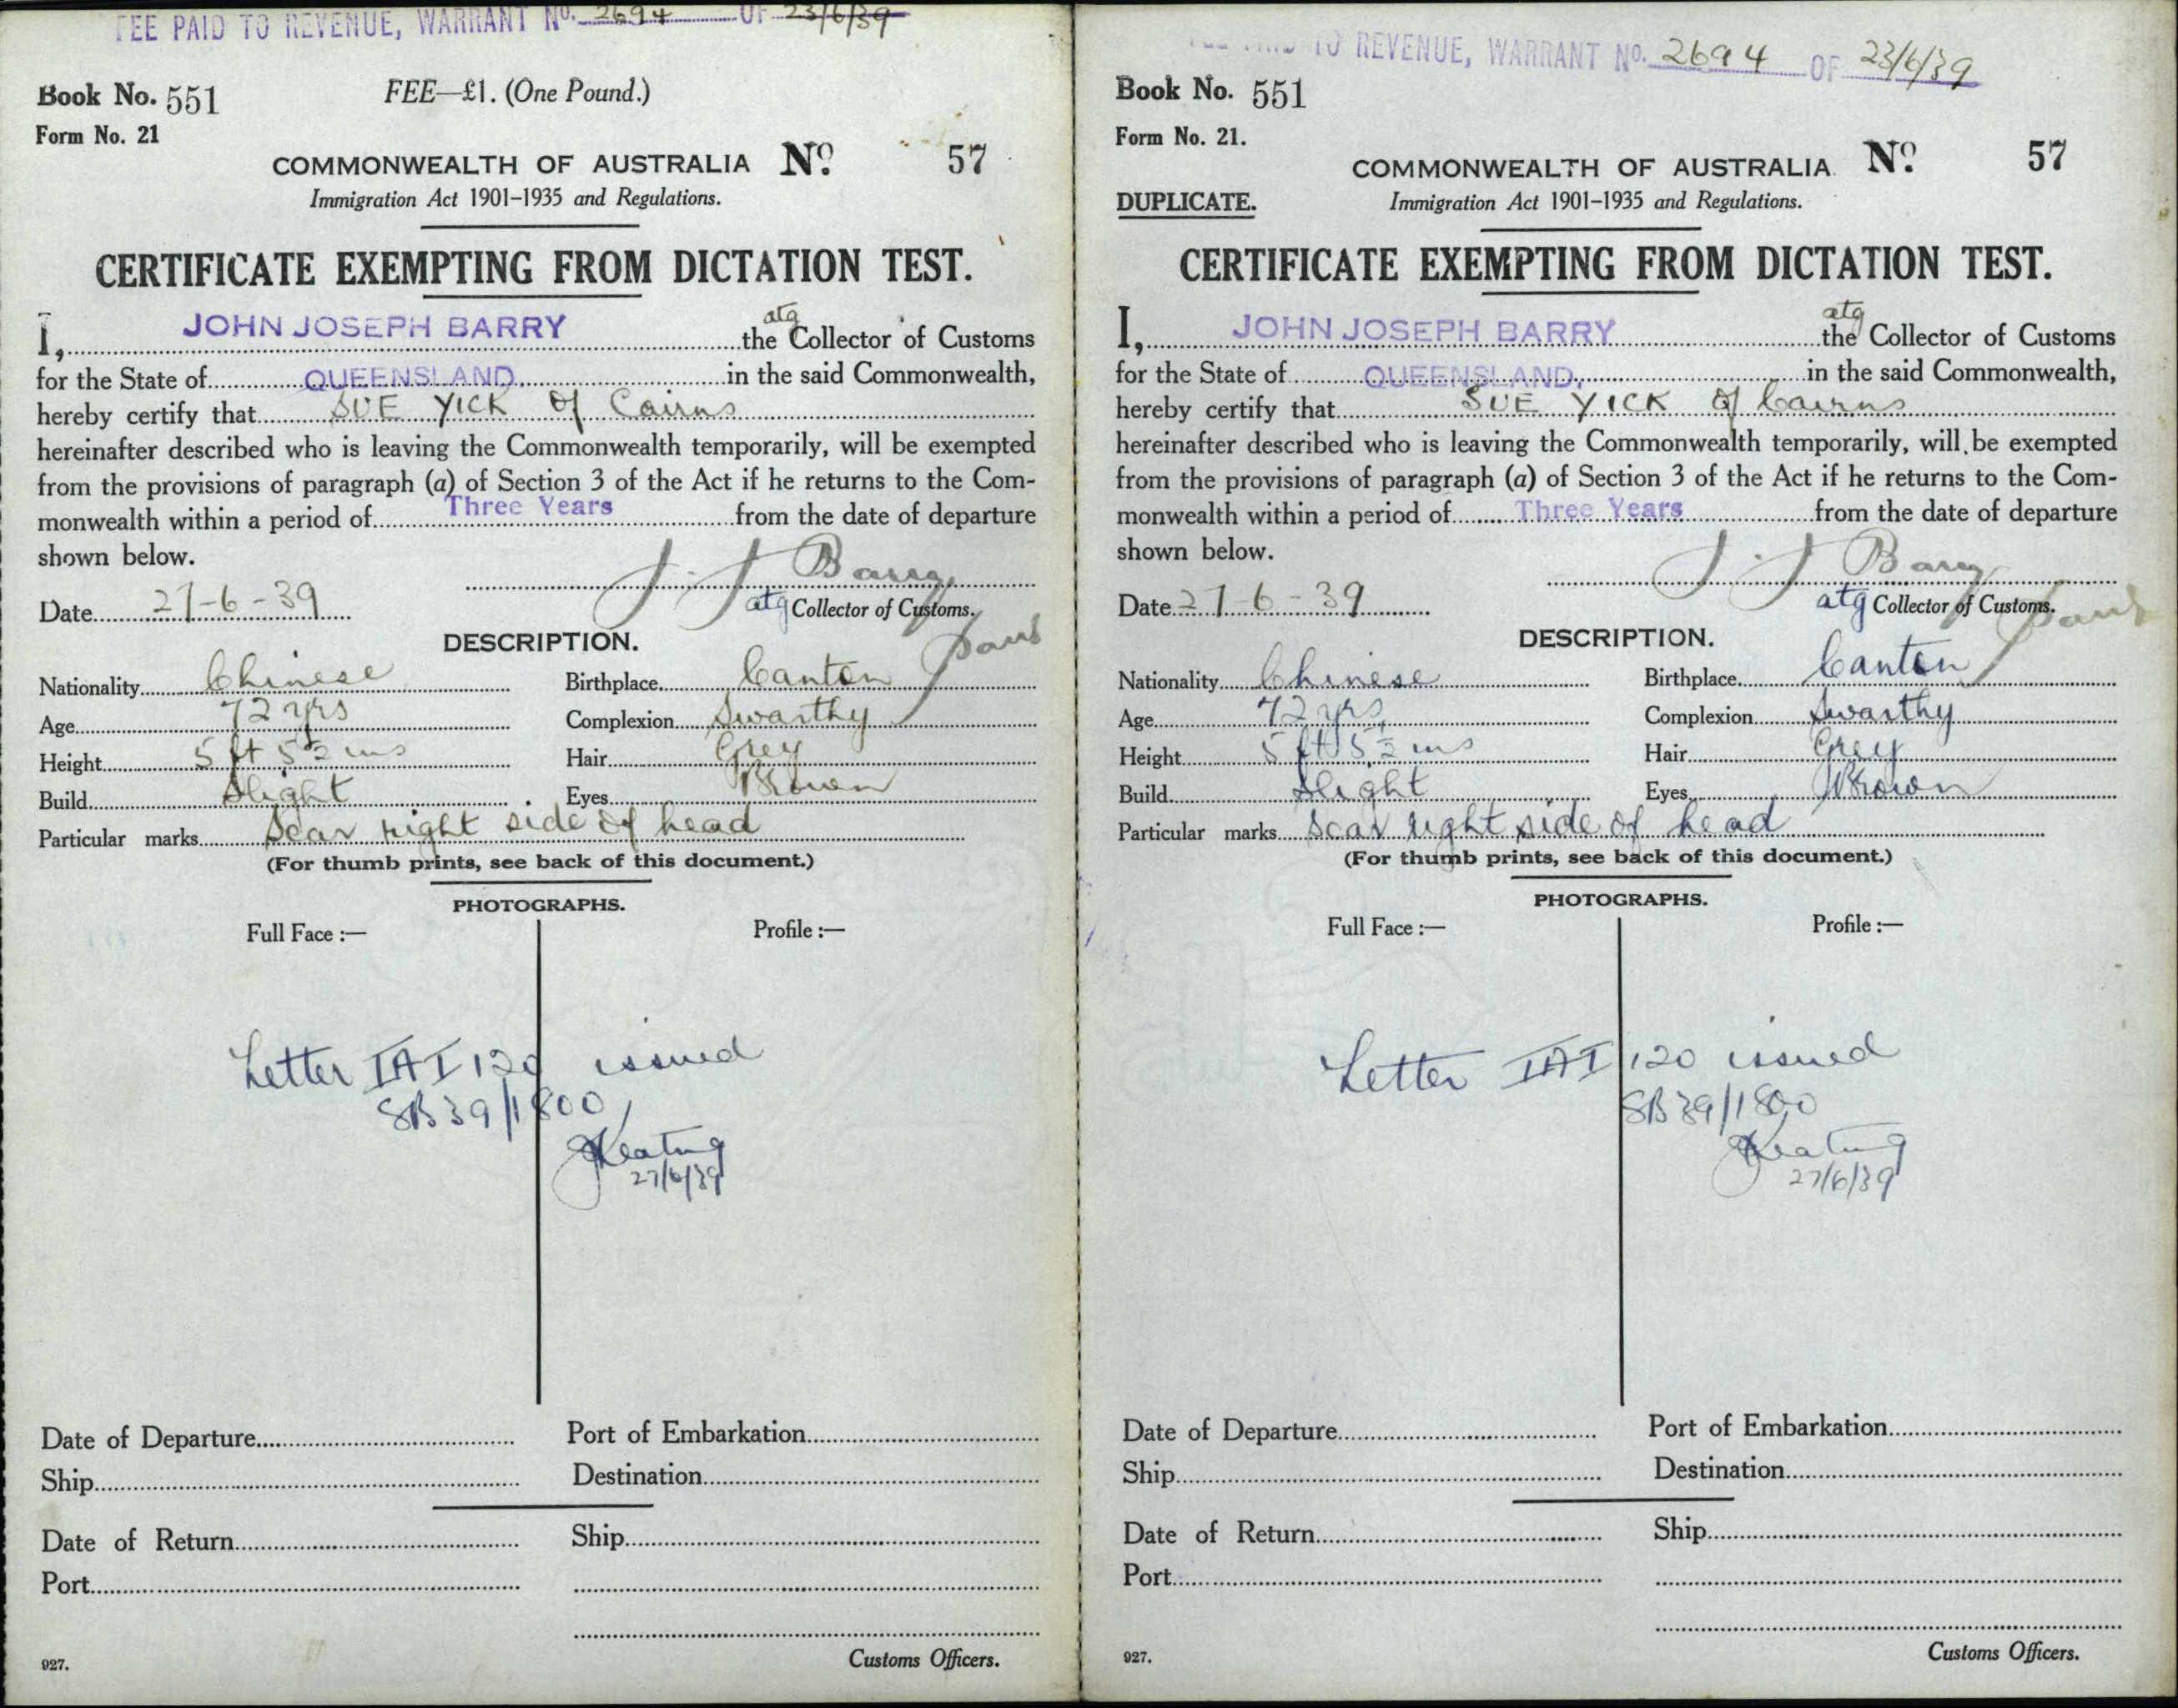 FEE PAID TO REVENUE, WARRANT No. 2694 OF 23/6/39
Book No. 551 FEE—£1. (One Pound.)
Form No. 21
COMMONWEALTH OF AUSTRALIA No. 57
Immigration Act 1901–1935 and Regulations.
CERTIFICATE EXEMPTING FROM DICTATION TEST.
I, JOHN JOSEPH BARRY the atg Collector of Customs
for the State of QUEENSLAND. in the said Commonwealth,
hereby certify that SUE YICK of Cairns
hereinafter described who is leaving the Commonwealth temporarily, will be exempted
from the provisions of paragraph (a) of Section 3 of the Act if he returns to the Com-
monwealth within a period of Three Years from the date of departure
shown below.
J. J Barry
Date 27-6-39 atg Collector of Customs.
DESCRIPTION.
Nationality Chinese Birthplace Canton
Age 72 yrs Complexion Swarthy
Height 5 ft 5½ ins Hair Grey
Build Slight Eyes Brown
Particular marks Scar right side of head
(For thumb prints, see back of this document.)
PHOTOGRAPHS.
Full Face :— Profile :—
Letter IAI 120 issued
SB39/1800
Keating
27/6/39
Date of Departure Port of Embarkation
Ship Destination
Date of Return Ship
Port
927. Customs Officers.
TO REVENUE, WARRANT No. 2694 OF 23/6/39
Book No. 551
Form No. 21.
COMMONWEALTH OF AUSTRALIA. No. 57
DUPLICATE. Immigration Act 1901–1935 and Regulations.
CERTIFICATE EXEMPTING FROM DICTATION TEST.
I, JOHN JOSEPH BARRY the atg Collector of Customs
for the State of QUEENSLAND. in the said Commonwealth,
hereby certify that SUE YICK of Cairns
hereinafter described who is leaving the Commonwealth temporarily, will be exempted
from the provisions of paragraph (a) of Section 3 of the Act if he returns to the Com-
monwealth within a period of Three Years from the date of departure
shown below.
J. J Barry
Date 27-6-39 atg Collector of Customs.
DESCRIPTION.
Nationality Chinese Birthplace Canton
Age 72 yrs Complexion Swarthy
Height 5 ft 5½ ins Hair Grey
Build Slight Eyes Brown
Particular marks Scar right side of head
(For thumb prints, see back of this document.)
PHOTOGRAPHS.
Full Face :— Profile :—
Letter IAI 120 issued
SB39/1800
Keating
27/6/39
Date of Departure Port of Embarkation
Ship Destination
Date of Return Ship
Port
927. Customs Officers.